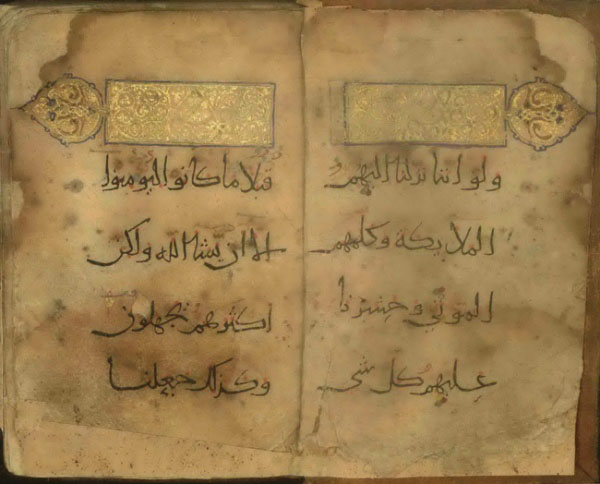 ولو اننا نزلنا اليهم
الملايكة وكلمهم
الموتي وحشرنا
عليهم كل شي
قبلا ما كانوا ليومنوا
الا ان يشا الله ولكن
اكثرهم يجهلون
وكذلك جعلنا